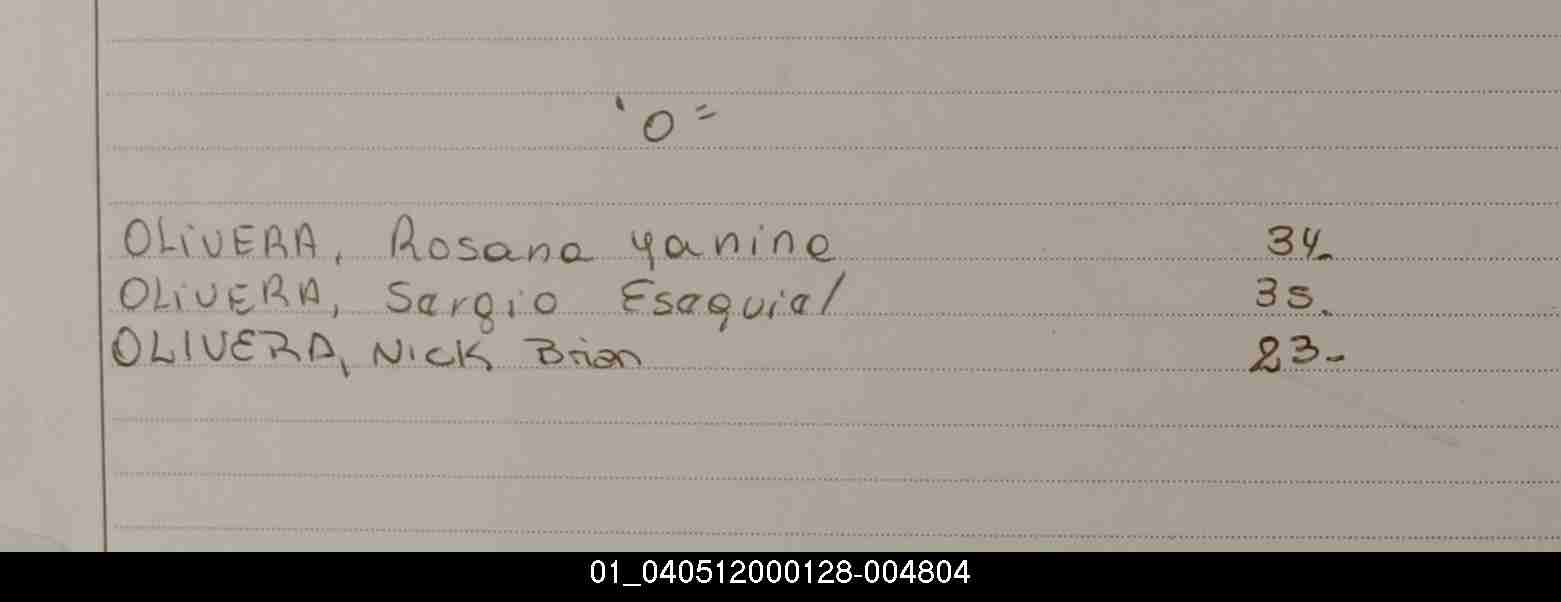 'O=
OLIVERA, Rosana Yanine
OLIVERA, Sergio Esequial
OLIVERA, Nick Brian
34.
35.
23-
01_040512000128-004804